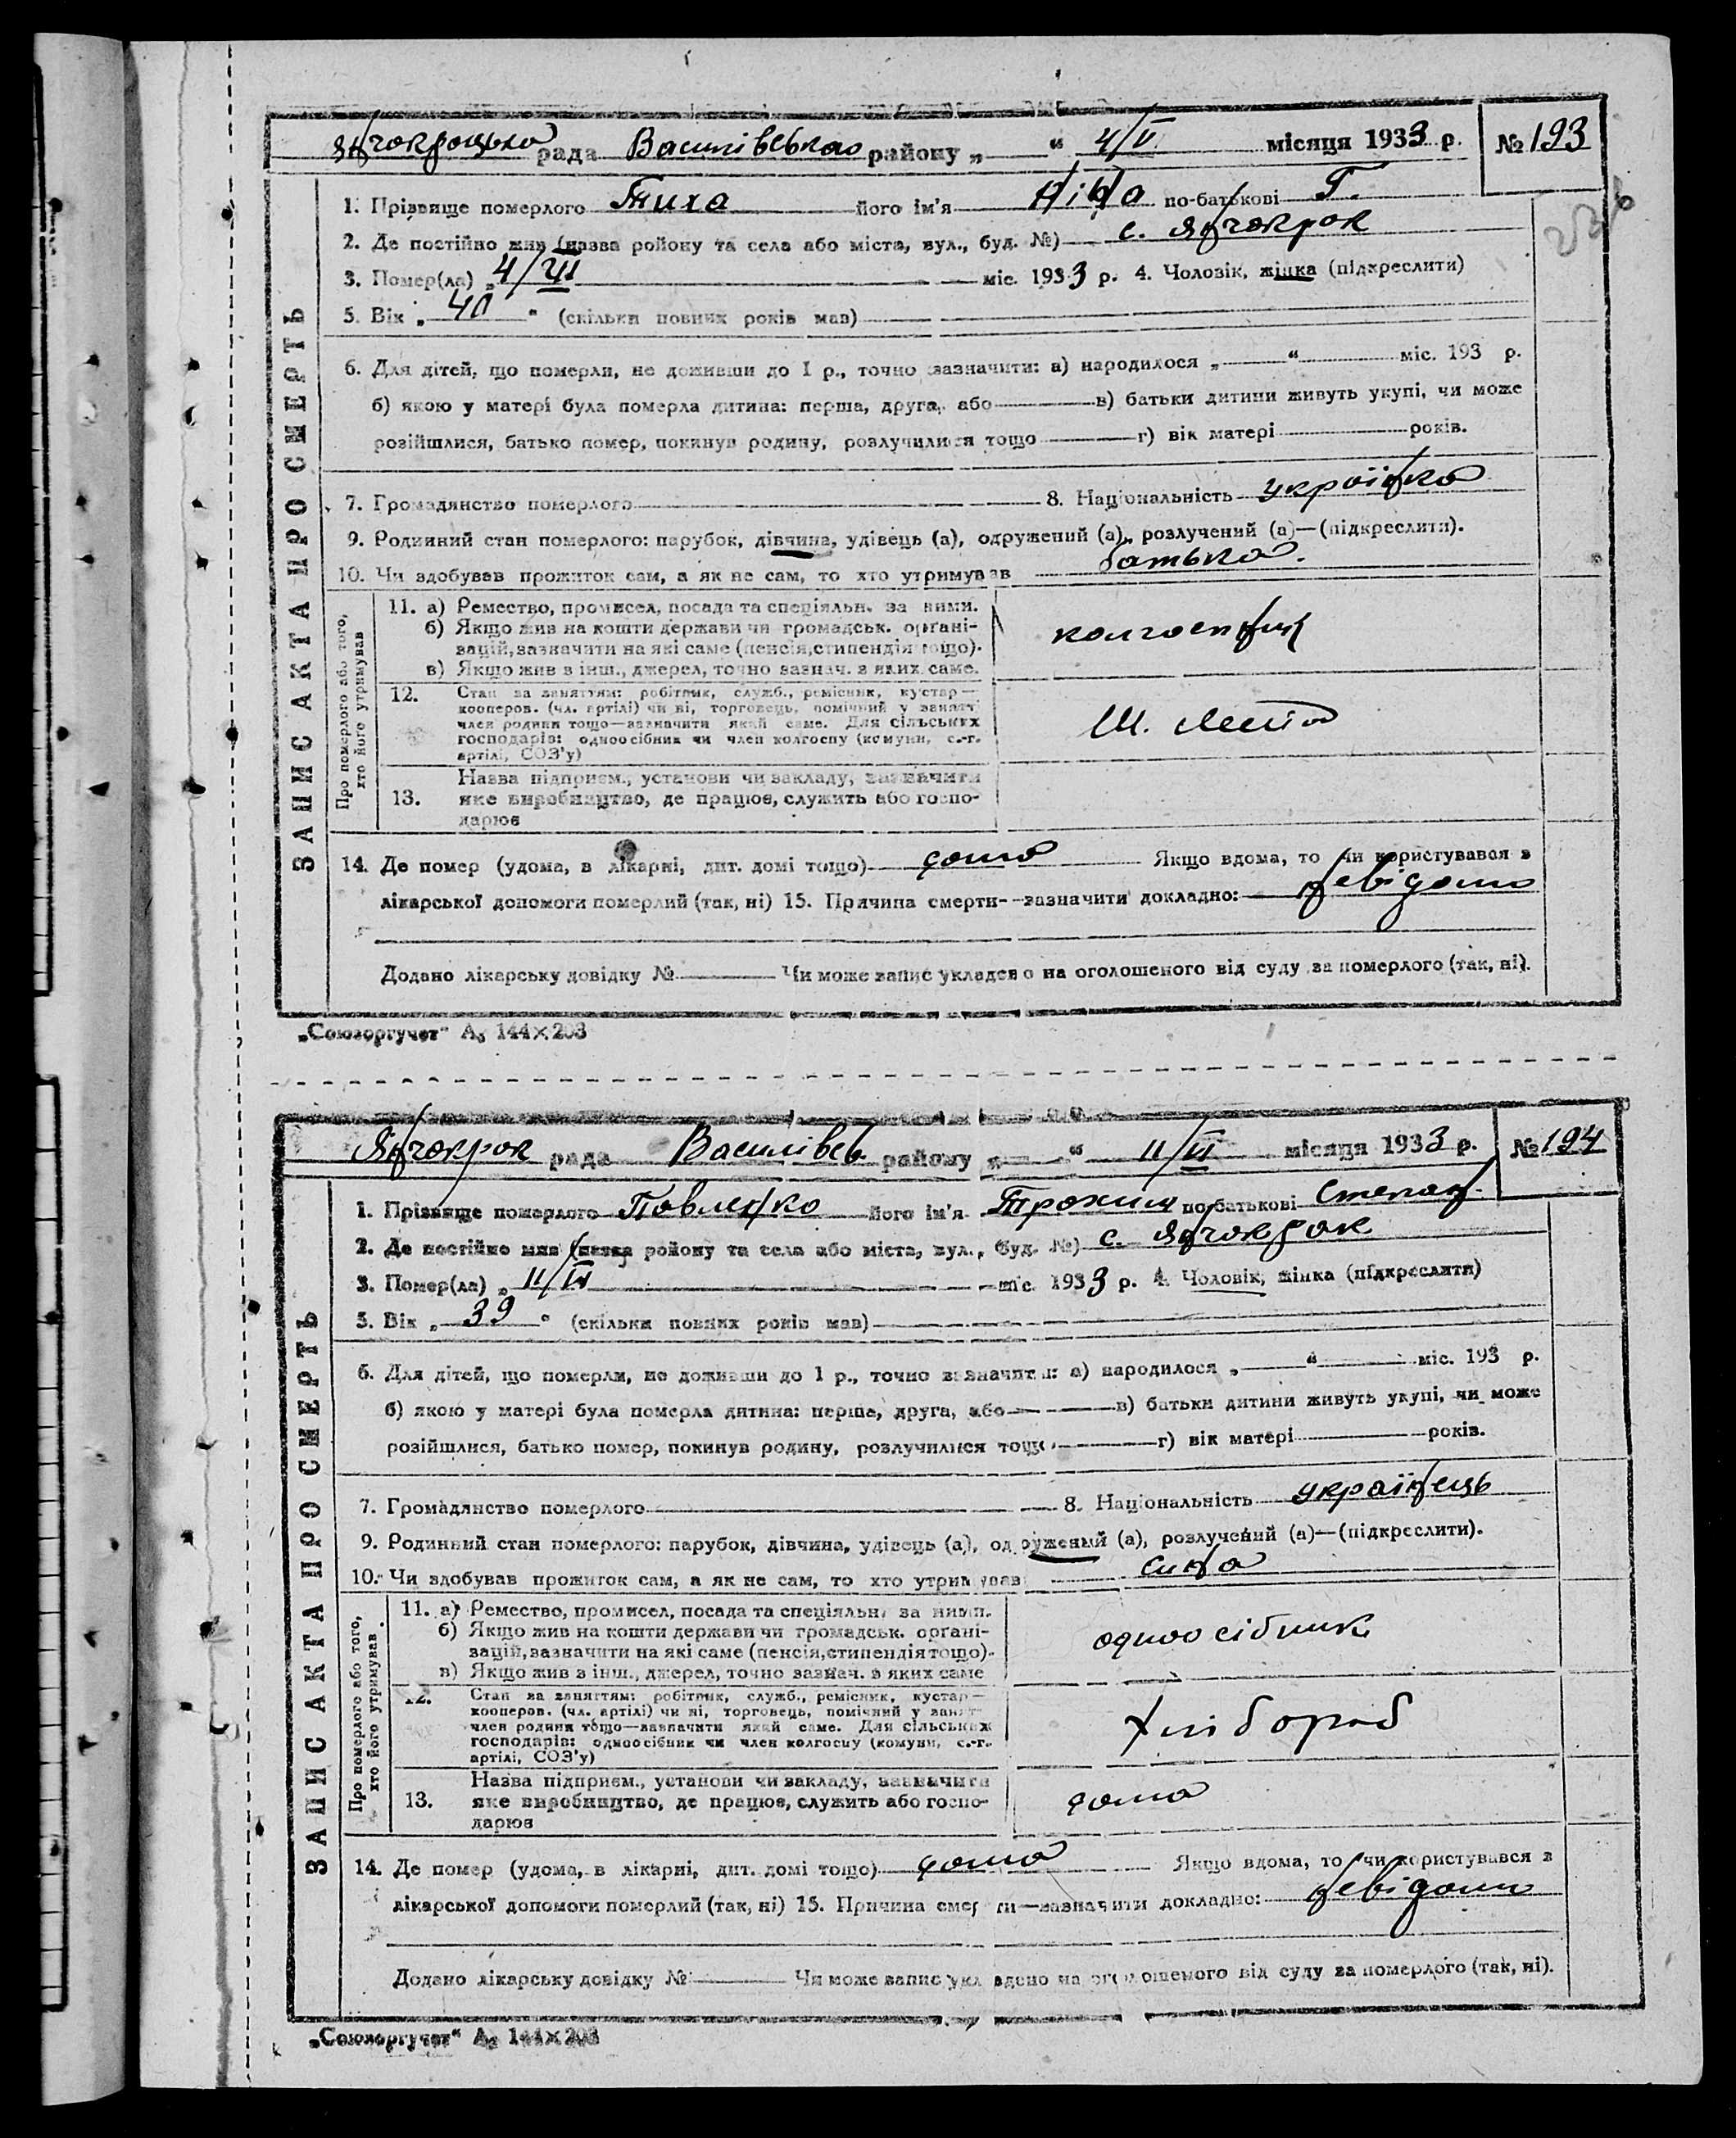 Янчокрацька рада Василівського району „ “ 4/V місяця 1933 р. № 193
ЗАПИС АКТА ПРО СМЕРТЬ
1. Прізвище померлого Тиха його ім'я Ніна по-батькові Г.
2. Де постійно жив (назва району та села або міста, вул., буд. №) с. Янчокрок
3. Помер(ла) „ 4/ міс. 1933 р. 4. Чоловік, жінка (підкреслити)
5. Вік „ 40 “ (скільки повних років мав)
6. Для дітей, що померли, не доживши до 1 р., точно зазначити: а) народилося „ “ міс. 193 р.
б) якою у матері була померла дитина: перша, друга, або в) батьки дитини живуть укупі, чи може
розійшлися, батько помер, покинув родину, розлучилися тощо г) вік матері років.
7. Громадянство померлого 8. Національність українка
9. Родинний стан померлого: парубок, дівчина, удівець (а), одружений (а), розлучений (а)—(підкреслити).
10. Чи здобував прожиток сам, а як не сам, то хто утримував батько.
Про померлого або того, хто його утримував
11. а) Ремество, промисел, посада та спеціяльн. за ними.
б) Якщо жив на кошти держави чи громадськ. органі-
зацій, зазначити на які саме (пенсія, стипендія тощо).
в) Якщо жив з інш., джерел, точно зазнач. з яких саме.
колгоспник
12. Стан за заняттям: робітник, служб., ремісник, кустар—
кооперов. (чл. артілі) чи ні, торговець, помічний у занятт
член родини тощо—зазначити який саме. Для сільських
господарів: одноосібник чи член колгоспу (комуни, с.-г.
артілі, СОЗ'у)
13. Назва підприєм., установи чи закладу, зазначити
яке виробництво, де працює, служить або госпо-
дарює
14. Де помер (удома, в лікарні, дит. домі тощо) дома Якщо вдома, то чи користувався з
лікарської допомоги померлий (так, ні) 15. Причина смерти—зазначити докладно: невідомо
Додано лікарську довідку № Чи може запис укладено на оголошеного від суду за померлого (так, ні).
„Союзоргучет“ А5 144×203
Янчокрок рада Василівсь. району „ “ 11/VI місяця 1933 р. № 194
ЗАПИС АКТА ПРО СМЕРТЬ
1. Прізвище померлого Павленко його ім'я Трохим по-батькові Степан.
2. Де постійно жив (назва району та села або міста, вул., буд. №) с. Янчокрок
3. Помер(ла) „ 11/VI міс. 1933 р. 4. Чоловік, жінка (підкреслити)
5. Вік „ 39 “ (скільки повних років мав)
6. Для дітей, що померли, не доживши до 1 р., точно зазначити: а) народилося „ “ міс. 193 р.
б) якою у матері була померла дитина: перша, друга, або в) батьки дитини живуть укупі, чи може
розійшлися, батько помер, покинув родину, розлучилися тощо г) вік матері років.
7. Громадянство померлого 8. Національність українець
9. Родинний стан померлого: парубок, дівчина, удівець (а), одружений (а), розлучений (а)—(підкреслити).
10. Чи здобував прожиток сам, а як не сам, то хто утримував сина
Про померлого або того, хто його утримував
11. а) Ремество, промисел, посада та спеціяльн. за ними.
б) Якщо жив на кошти держави чи громадськ. органі-
зацій, зазначити на які саме (пенсія, стипендія тощо).
в) Якщо жив з інш., джерел, точно зазнач. з яких саме
одноосібник
12. Стан за заняттям: робітник, служб., ремісник, кустар—
кооперов. (чл. артілі) чи ні, торговець, помічний у занят
член родини тощо—зазначити який саме. Для сільських
господарів: одноосібник чи член колгоспу (комуни, с.-г.
артілі, СОЗ'у)
хлібороб
13. Назва підприєм., установи чи закладу, зазначити
яке виробництво, де працює, служить або госпо-
дарює
дома
14. Де помер (удома, в лікарні, дит. домі тощо) дома Якщо вдома, то чи користувався з
лікарської допомоги померлий (так, ні) 15. Причина смерти—зазначити докладно: невідомо
Додано лікарську довідку № Чи може запис укладено на оголошеного від суду за померлого (так, ні).
„Союзоргучет“ А5 144×203